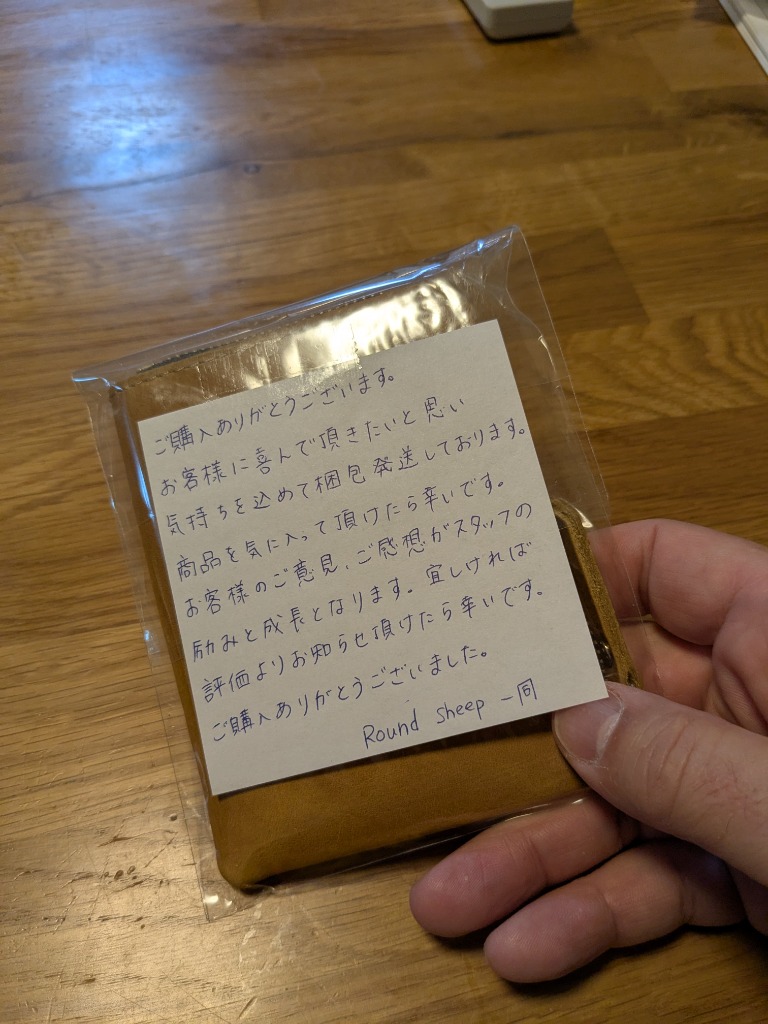 ご購入ありがとうございます。
お客様に喜んで頂きたいと思い
気持ちを込めて梱包発送しております。
商品を気に入って頂けたら幸いです。
お客様のご意見、ご感想がスタッフの
励みと成長となります。宜しければ
評価よりお知らせ頂けたら幸いです。
ご購入ありがとうございました。
Round sheep 一同